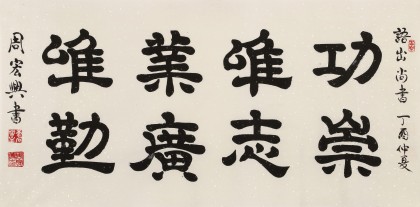 語出尚書 丁酉仲夏
功崇
惟志
業廣
惟勤
周宏興書